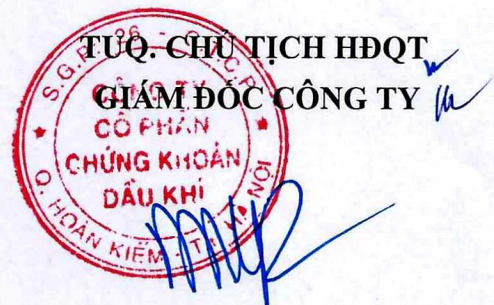 TUQ. CHỦ TỊCH HĐQT
GIÁM ĐỐC CÔNG TY
CÔNG TY
CỔ PHẦN
CHỨNG KHOÁN
DẦU KHÍ
Q. HOÀN KIẾM - T.P HÀ NỘI